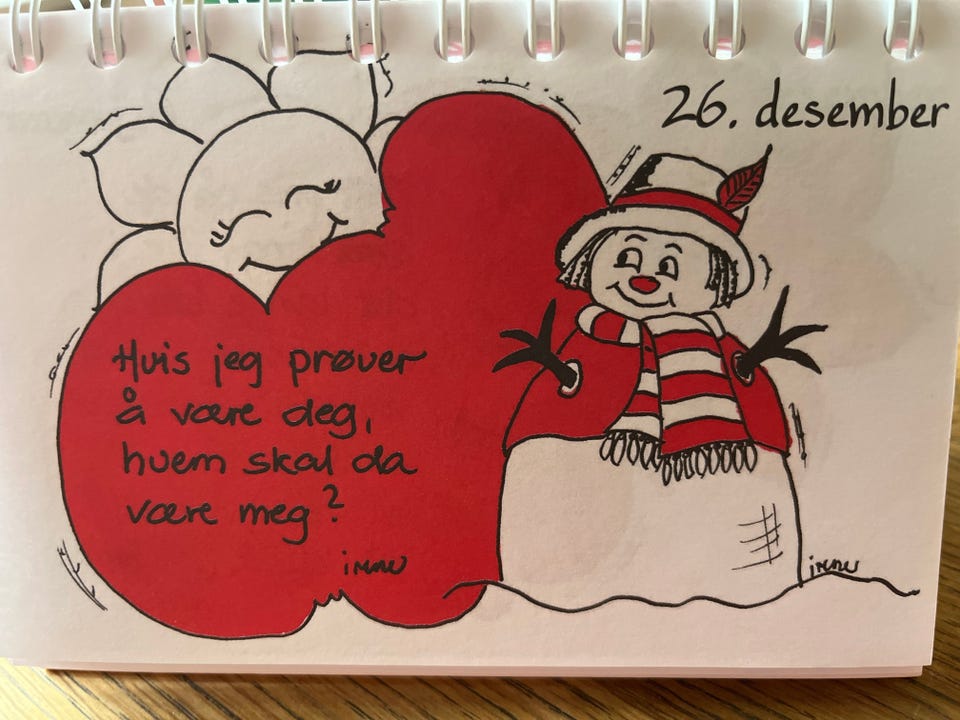 26. desember
Hvis jeg prøver
å være deg,
hvem skal da
være meg?
irene
irene